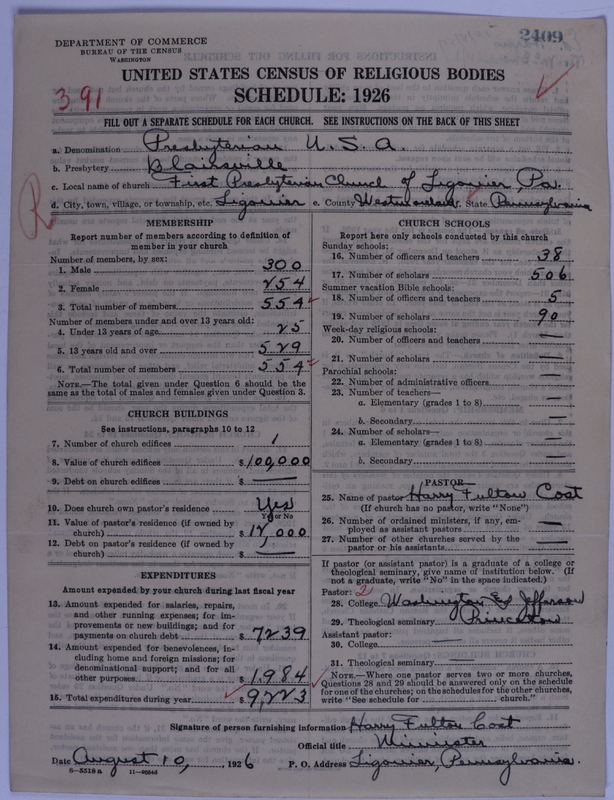 2409
DEPARTMENT OF COMMERCE
BUREAU OF THE CENSUS
WASHINGTON
UNITED STATES CENSUS OF RELIGIOUS BODIES
391
SCHEDULE: 1926
FILL OUT A SEPARATE SCHEDULE FOR EACH CHURCH. SEE INSTRUCTIONS ON THE BACK OF THIS SHEET
a. Denomination Presbyterian U. S. A.
b. Presbytery Blairsville
c. Local name of church First Presbyterian Church of Ligonier, Pa.
d. City, town, village, or township, etc. Ligonier e. County Westmoreland f. State Pennsylvania
R
MEMBERSHIP
Report number of members according to definition of
member in your church
Number of members, by sex:
1. Male 300
2. Female 254
3. Total number of members 554
Number of members under and over 13 years old:
4. Under 13 years of age 25
5. 13 years old and over 529
6. Total number of members 554
NOTE.—The total given under Question 6 should be the
same as the total of males and females given under Question 3.
CHURCH BUILDINGS
See instructions, paragraphs 10 to 12
7. Number of church edifices 1
8. Value of church edifices $100,000
9. Debt on church edifices $ —
10. Does church own pastor's residence Yes
Yes or No
11. Value of pastor's residence (if owned by
church) $12,000
12. Debt on pastor's residence (if owned by
church) $ —
EXPENDITURES
Amount expended by your church during last fiscal year
13. Amount expended for salaries, repairs,
and other running expenses; for im-
provements or new buildings; and for
payments on church debt $7239
14. Amount expended for benevolences, in-
cluding home and foreign missions; for
denominational support; and for all
other purposes $1984
15. Total expenditures during year $9,223
CHURCH SCHOOLS
Report here only schools conducted by this church
Sunday schools:
16. Number of officers and teachers 38
17. Number of scholars 506
Summer vacation Bible schools:
18. Number of officers and teachers 5
19. Number of scholars 90
Week-day religious schools:
20. Number of officers and teachers —
21. Number of scholars —
Parochial schools:
22. Number of administrative officers —
23. Number of teachers—
a. Elementary (grades 1 to 8) —
b. Secondary —
24. Number of scholars—
a. Elementary (grades 1 to 8) —
b. Secondary —
PASTOR
25. Name of pastor Harry Fulton Cost
(If church has no pastor, write "None")
26. Number of ordained ministers, if any, em-
ployed as assistant pastors —
27. Number of other churches served by the
pastor or his assistants —
If pastor (or assistant pastor) is a graduate of a college or
theological seminary, give name of institution below. (If
not a graduate, write "No" in the space indicated.)
Pastor: 2
28. College Washington & Jefferson
29. Theological seminary Princeton
Assistant pastor:
30. College —
31. Theological seminary —
NOTE.—Where one pastor serves two or more churches,
Questions 28 and 29 should be answered only on the schedule
for one of the churches; on the schedules for the other churches,
write "See schedule for church."
Signature of person furnishing information Harry Fulton Cost
Official title Minister
Date August 10, 1926 P. O. Address Ligonier, Pennsylvania.
8—5518a